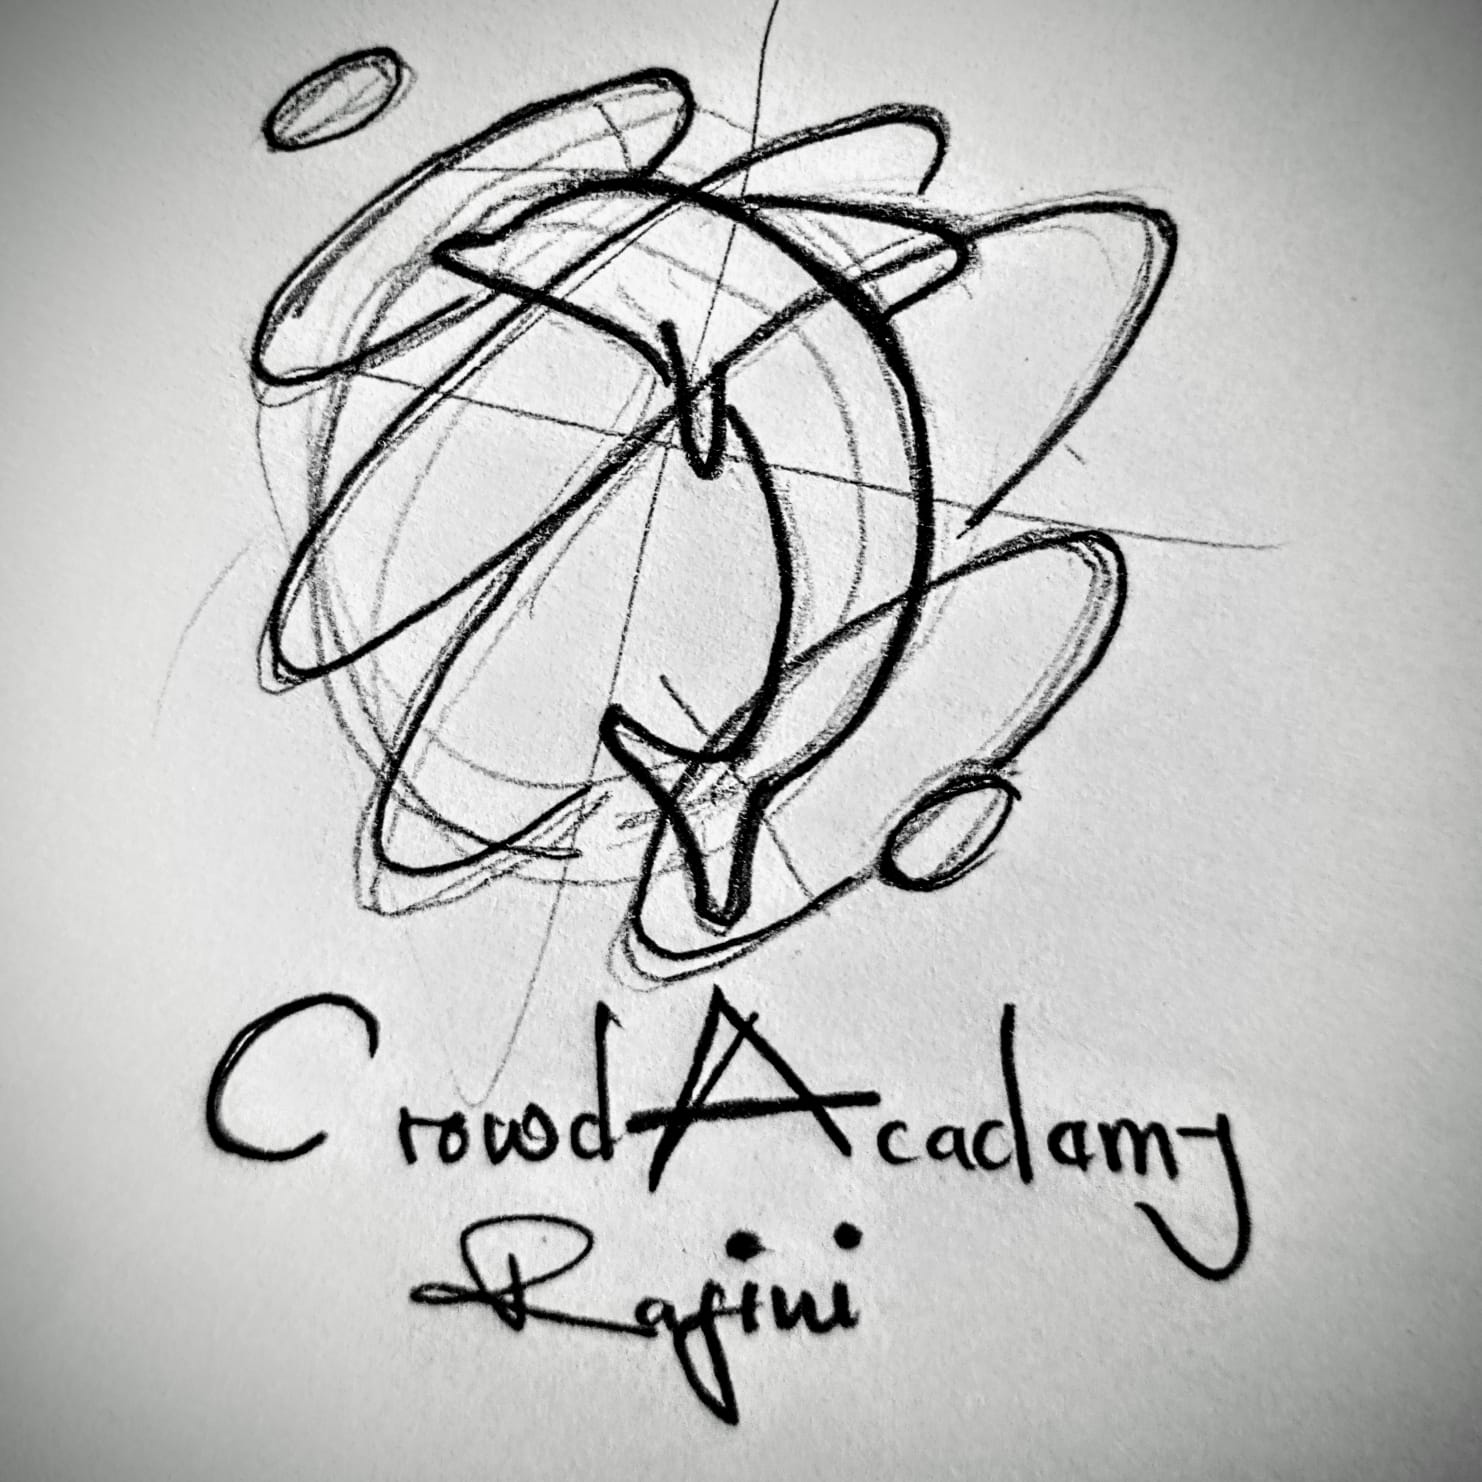 CrowdAcadamy
Ragini